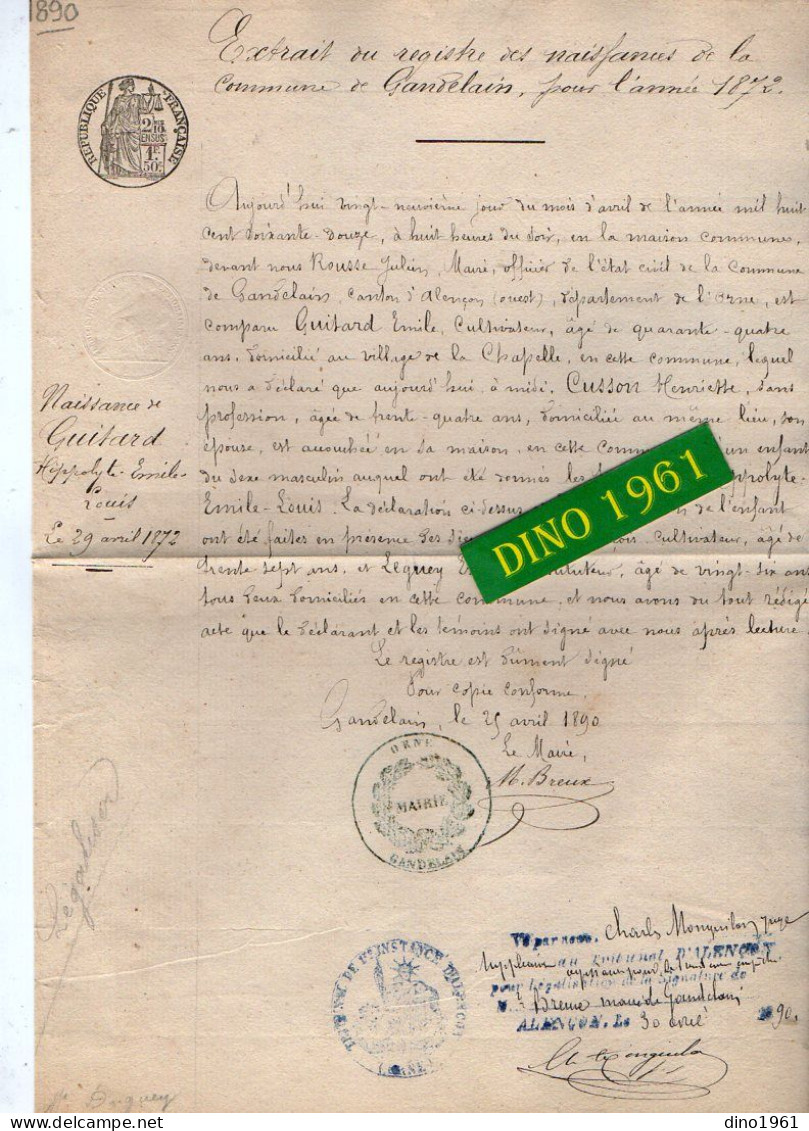 1890
Extrait du registre des naissances de la
Commune de Gandelain, pour l'année 1872.
REPUBLIQUE FRANÇAISE
2/10
EN SUS
1F.
50c.
Aujourd'hui vingt-neuvième jour du mois d'avril de l'année mil huit
cent soixante-douze, à huit heures du soir, en la maison commune,
devant nous Rousse Julien, Maire, officier de l'état civil de la Commune
de Gandelain, canton d'Alençon (ouest), département de l'Orne, est
comparu Guitard Emile, Cultivateur, âgé de quarante-quatre
ans, domicilié au village de la Chapelle, en cette commune, lequel
nous a déclaré que aujourd'hui, à midi, Cusson Henriette, sans
profession, âgée de trente-quatre ans, domiciliée au même lieu, son
épouse, est accouchée en sa maison, en cette Comm un enfant
du sexe masculin auquel ont été donnés les ppolyte-
Emile-Louis. La déclaration ci-dessus de l'enfant
ont été faites en présence des Sieu çois, Cultivateur, âgé de
trente-sept ans, et Leguey E tituteur, âgé de vingt-six ans
tous deux domiciliés en cette commune, et nous avons du tout rédigé
acte que le déclarant et les témoins ont signé avec nous après lecture.
Le registre est dûment signé
Pour copie conforme.
Gandelain, le 25 avril 1890
Le Maire,
M. Breux
Naissance de
Guitard
Hippolyte-Emile-
Louis
Le 29 avril 1872
DINO 1961
ORNE
MAIRIE
GANDELAIN
Légaliser
TRIBUNAL DE 1RE INSTANCE D'ALENCON
(ORNE)
Vu par nous, Charles Monguillon juge
suppléant au Tribunal D'ALENÇON
pour légalisation de la signature de
M. Breux maire de Gandelain
ALENÇON, LE 30 avril 1890.
dino1961